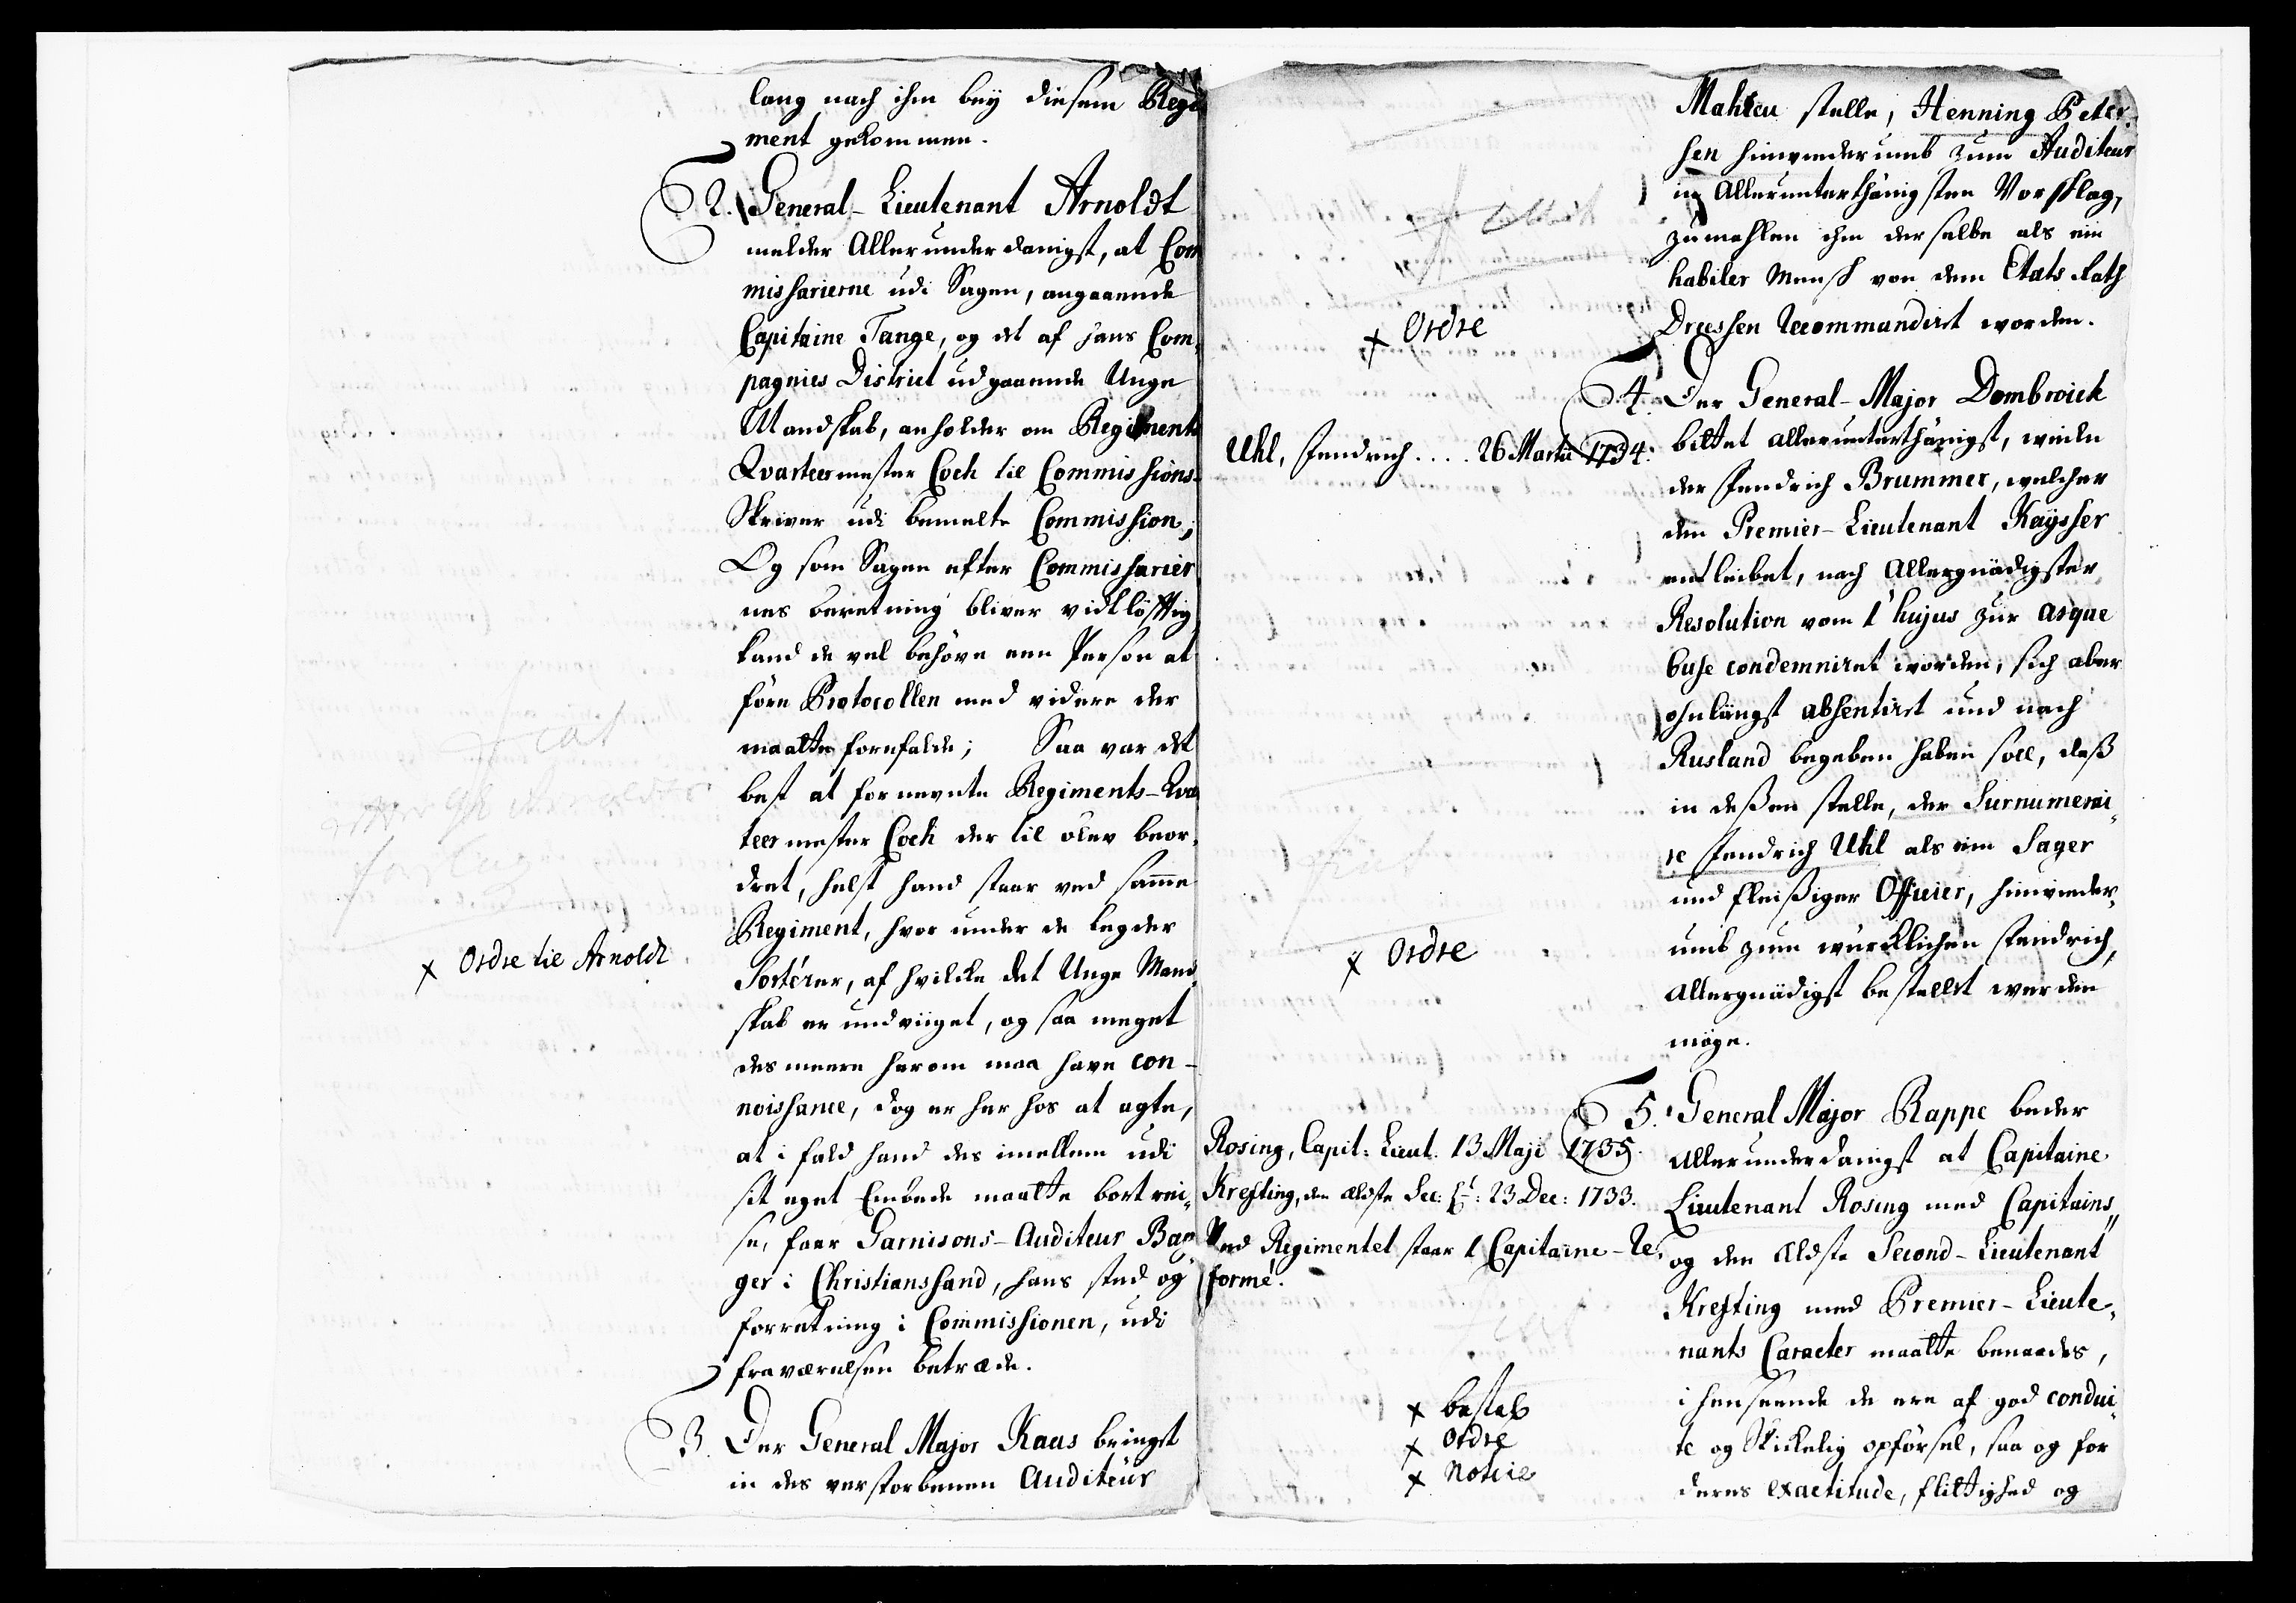 lang nach ihm beÿ diesem Regi
ment gekommen.
2. General-Lieutenant Arnoldt
melder Allerunderdanigst, at Com
missarierne udi Sagen, angaaende
Capitaine Tange, og det af hans Com,
pagnies District udgaaende Unge
Mandskab, anholder om Regiments
Qvarteermester Coch til Commissions-
Skriver udi bemelte Commission;
Og som Sagen efter Commissarier
nes beretning bliver vidtløfftig
kand de vel behöve een Person at
føre Protocollen med videre der
maatte forefalde; Saa var det
best at fornevnte Regiments-Qvar
teermester Coch der til blev beor,
dret, helst hand staar ved samme
Regiment, hvor under de Legder
Sortérer, af hvilcke det Unge Mand,
skab er undviiget, og saa meget
des meere herom maa have con-
noissance, dog er her hos at agte,
at i fald hand des imellem udi
sit eget Embede maatte bortrei,
se, faar Garnisons-Auditeur Bag
ger i Christianssand, hans sted og
forretning i Commissionen, udi
fraværelsen betræde.
3. Der General Major Kaas bringet
in des verstorbenen Auditeur
x Ordre til Arnoldt
Mahleu stelle, Henning Peter,
sen hinwiederumb zum Auditeur
in Allerunterthänigsten Vorschlag,
zumahlen ihm derselbe als ein
habiler Mensch von dem Etats Rath
Dreessen Recommandirt worden.
x Ordre
4. Der General-Major Dombroick
bittet allerunterthänigst, weilen
der Fendrich Brummer, welcher
den Premier-Lieutenant Kaÿsser
entleibet, nach Allergnädigster
Resolution vom 1 hujus zur arque
buse condemniret worden, sich aber
ohnlängst absentirt und nach
Rusland begeben haben soll, daß
in deßen stelle, der Surnumerai,
re Fendrich Uhl als ein Sager
und fleißiger Officier, hinwieder,
umb zum würcklichen Fendrich,
Allergnädigst bestellet werden
möge.
Uhl, Fendrich .... 26 Martii 1734.
x Ordre
5. General Major Rappe beder
Allerunderdanigst at Capitaine
Lieutenant Rosing med Capitains,
og den Ældste Second-Lieutenant
Krefting med Premier-Lieute,
nants Caracter maatte benaades,
i henseende de ere af god condui,
te og Skickelig opførsel, saa og for
deres exactitude, flittighed og
Rosing, Capit: Lieut. 13 Maji 1735.
Krefting, den Ældste Sec: Lt: 23 Dec: 1733.
Ved Regimentet staar 1 Capitaine-Re,
formé.
x bestal
x Ordre
x Notice